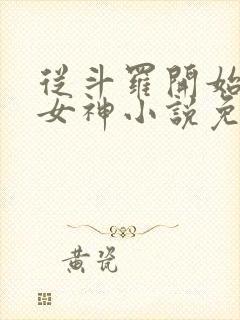 從斗羅開始
女神小說免
黃瓷